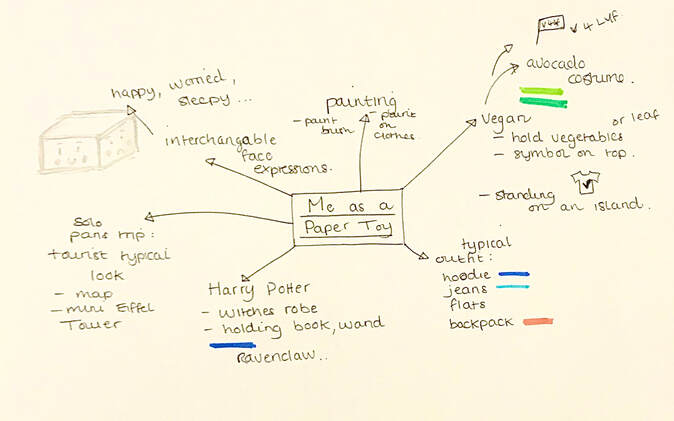 happy, worried,
sleepy...
interchangable
face
expressions.
painting
- paint
brush
- paint
on
clothes
V 4 LYF
avocado
costume.
vegan
or leaf
- hold vegetables
- symbol on top.
V
- standing
on an island.
Me as a
Paper Toy
solo
paris trip:
tourist typical
look
- map
- mini Eiffel
Tower
Harry Potter
- witches robe
- holding book, wand
Ravenclaw..
typical
outfit:
hoodie
jeans
flats
backpack